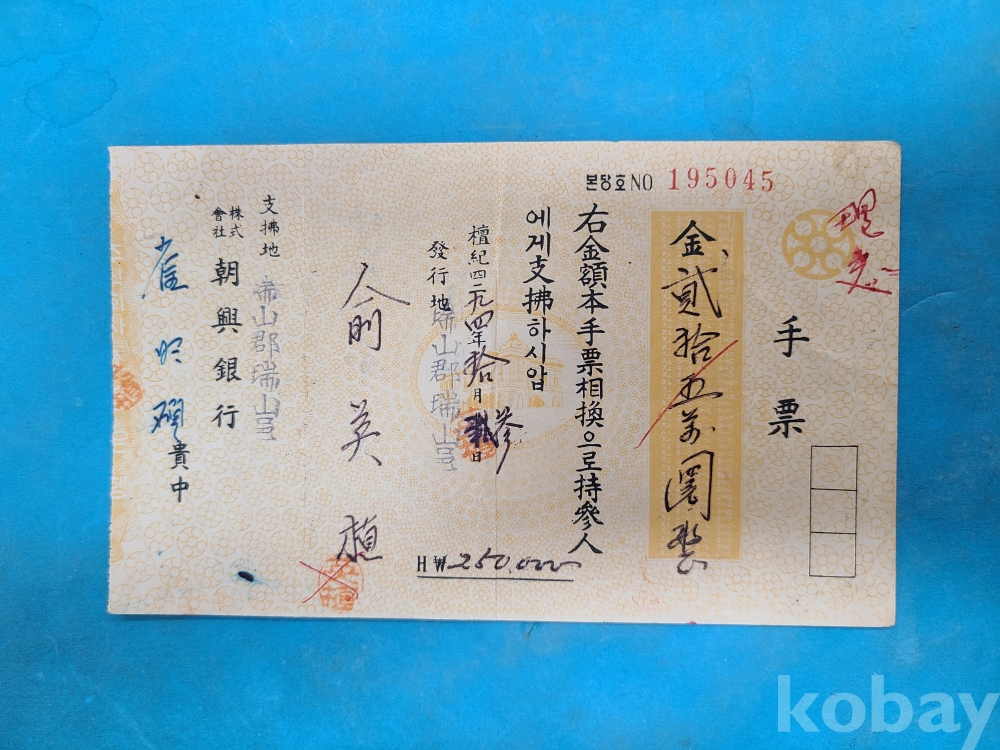 본당호NO 195045
手票
金貳拾五萬圜整
右金額本手票相換으로持參人
에게支拂하시압
檀紀四二九四年拾月 日
發行地 瑞山郡瑞山邑
俞英植
HW250,000
支拂地 瑞山郡瑞山邑
株式會社朝興銀行
貴中
kobay